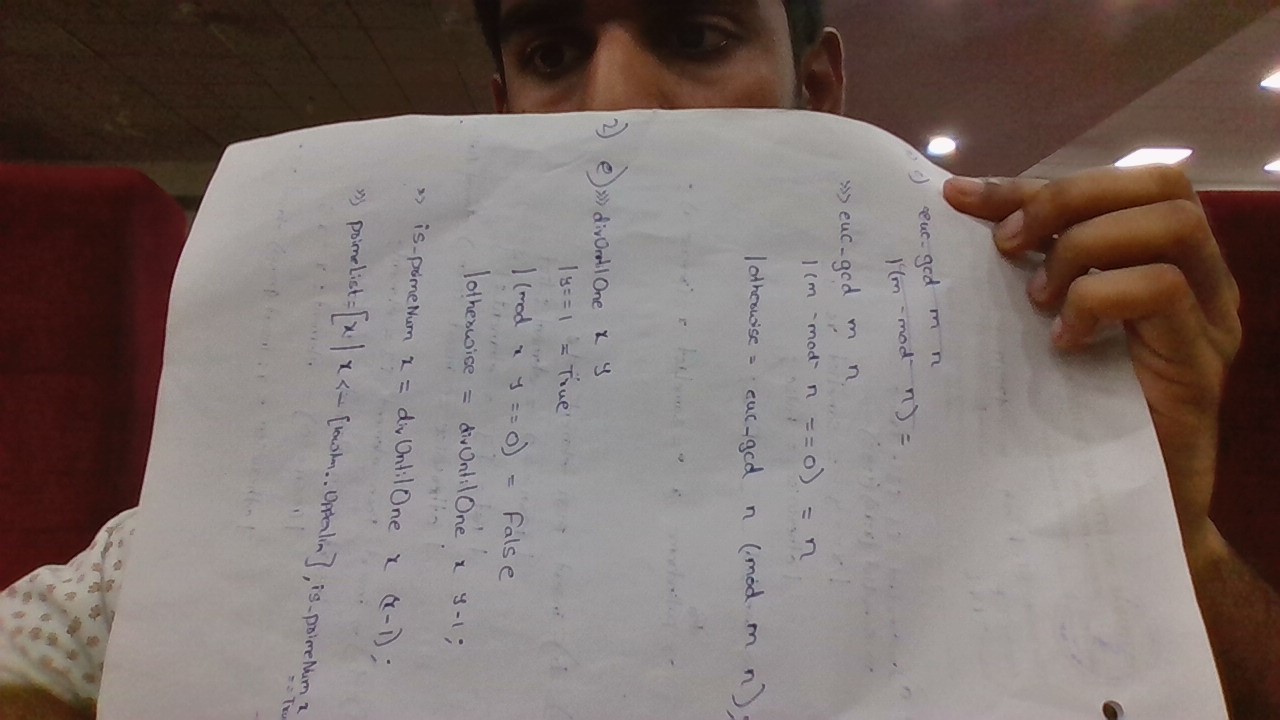 c) euc-gcd m n
|(m -mod- n) =
>>> euc-gcd m n
|(m -mod- n ==0) = n
|otherwise = euc-gcd n (mod m n);
2) e) >>> divUntilOne x y
|y==1 = True
|(mod x y ==0) = False
|otherwise = divUntilOne x y-1;
>> is-primeNum x = divUntilOne x (x-1);
>>> primeList=[x | x <- [..], is-primeNum x